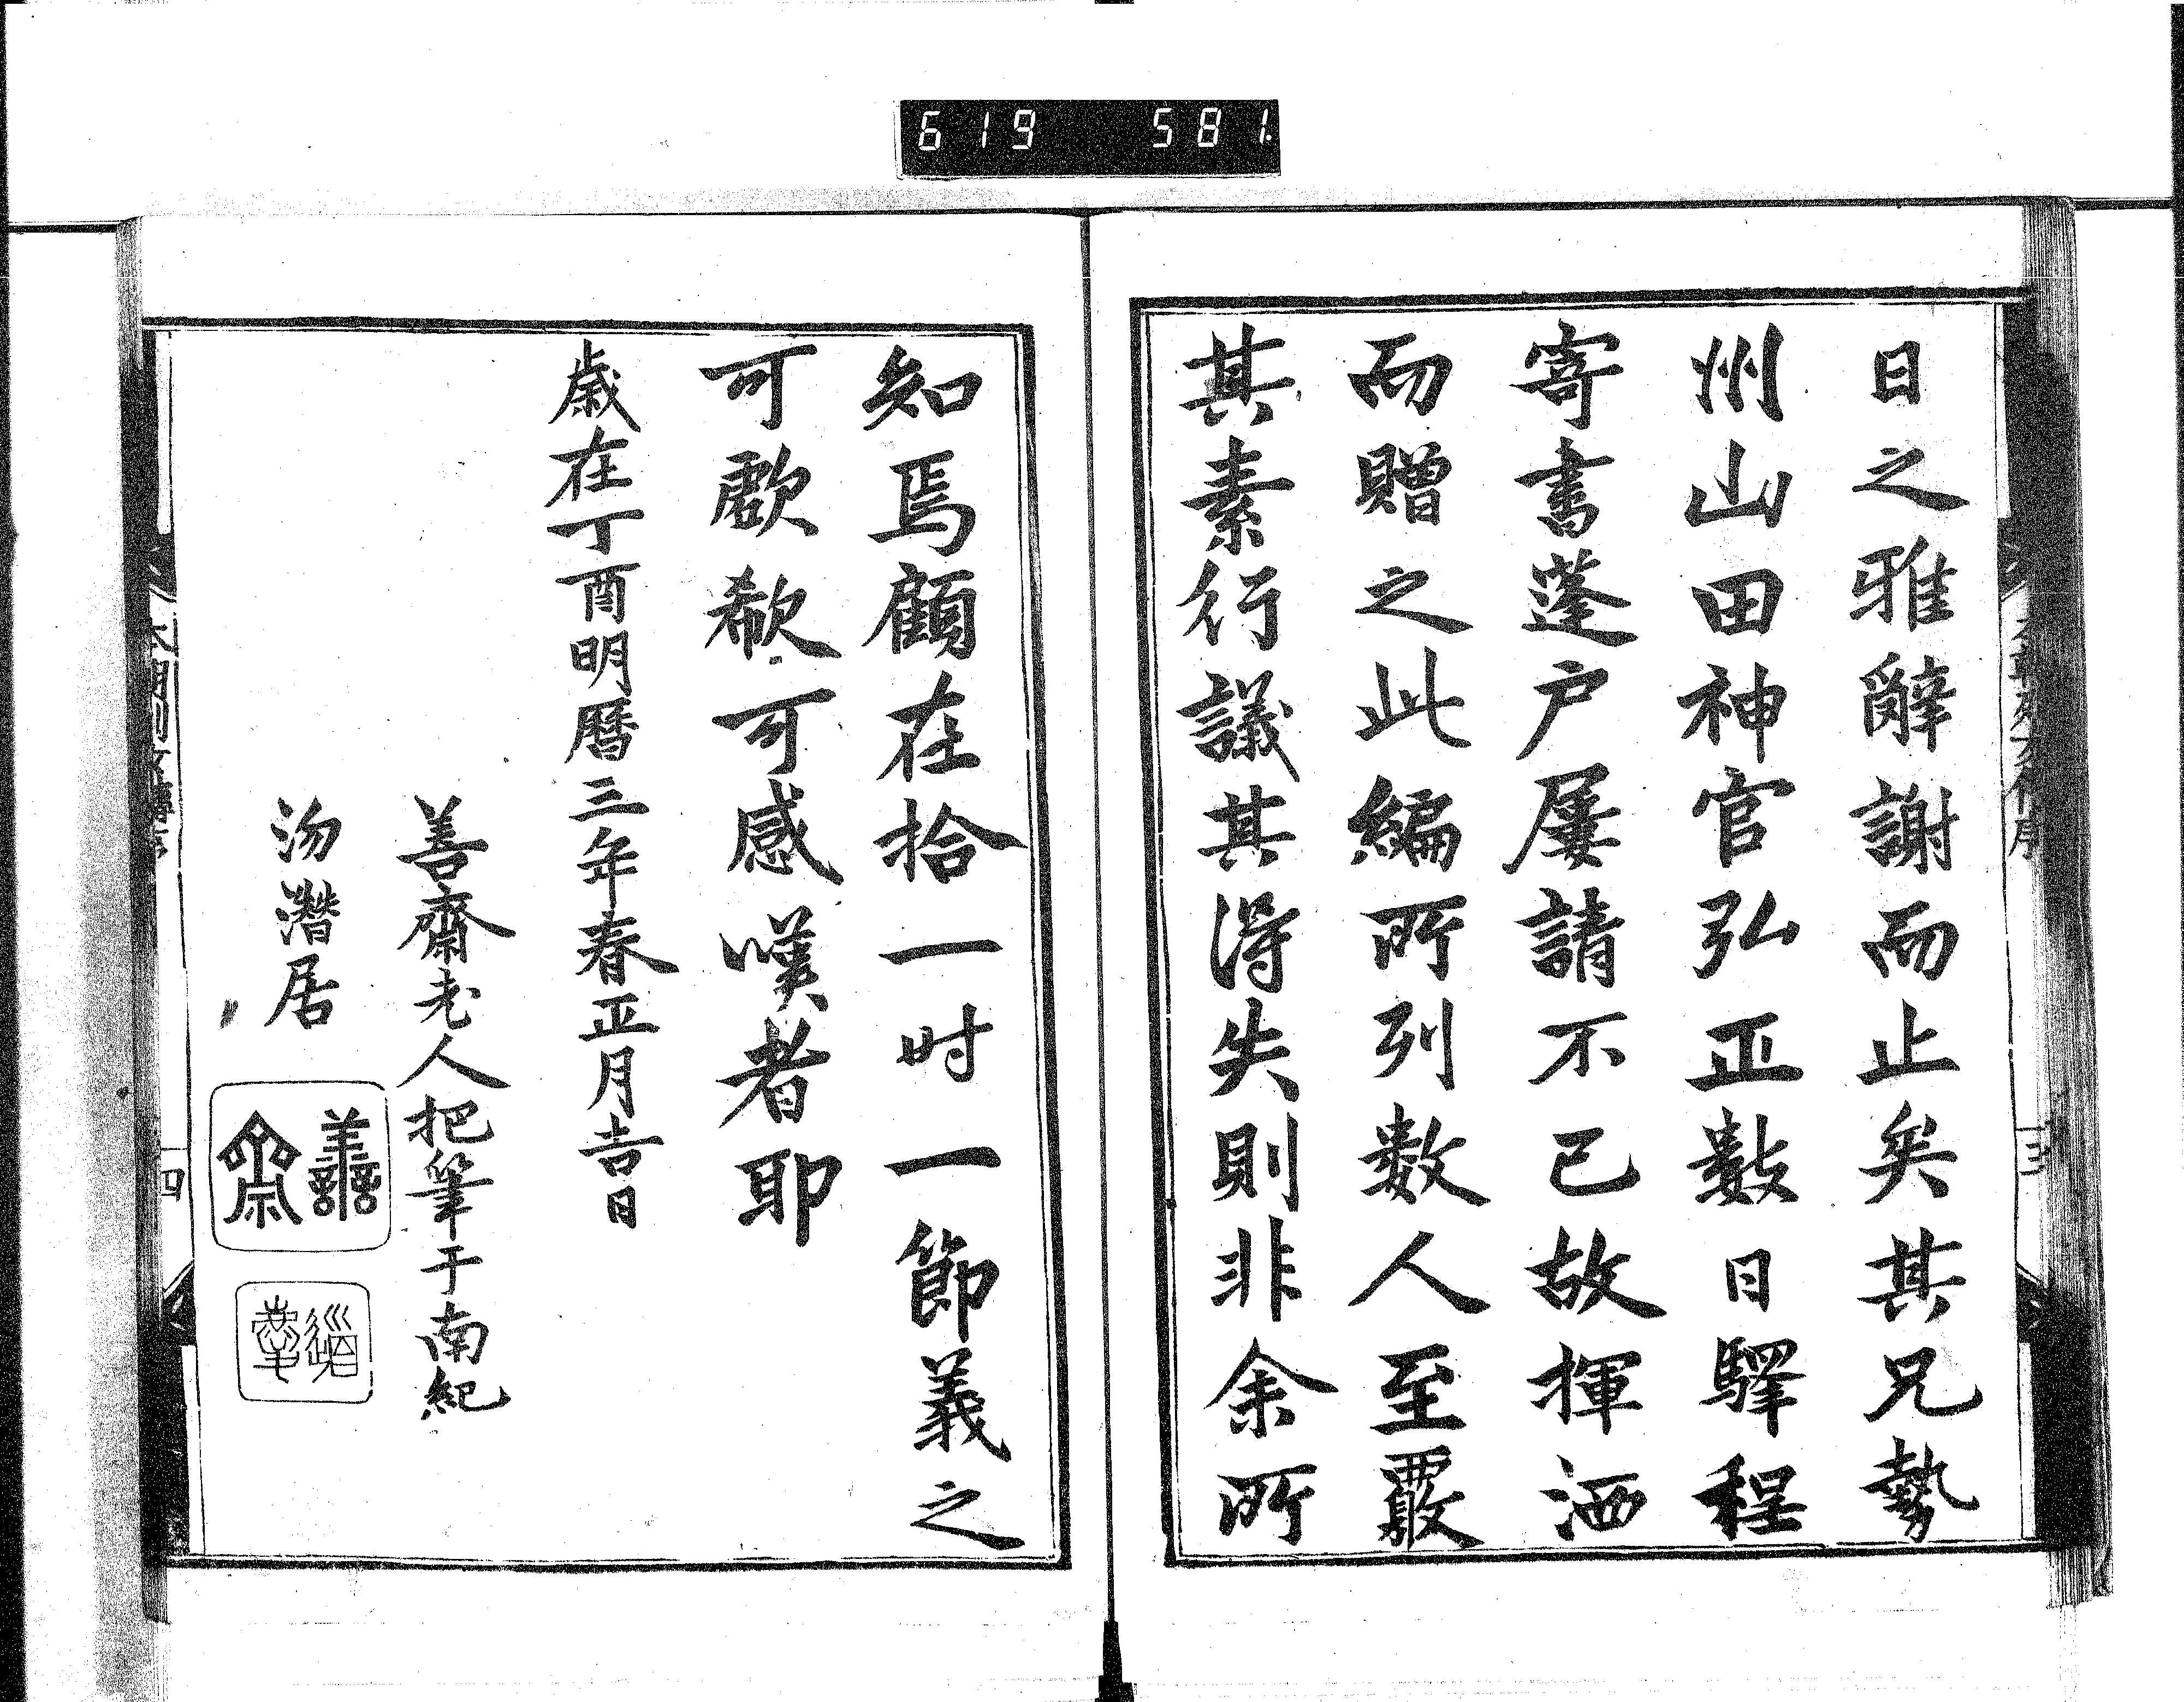 619 581.
日之雅辭謝而止矣其兄勢
州山田神官弘正數日驛程
寄書蓬户屢請不已故揮洒
而贈之此編所列数人至覈
其素行議其得失則非余所
知焉顧在拾一时一節義之
可歔欷可感嘆者耶
歲在丁酉明暦三年春正月吉日
善齋老人把筆于南紀
沕潛居
善齋
四